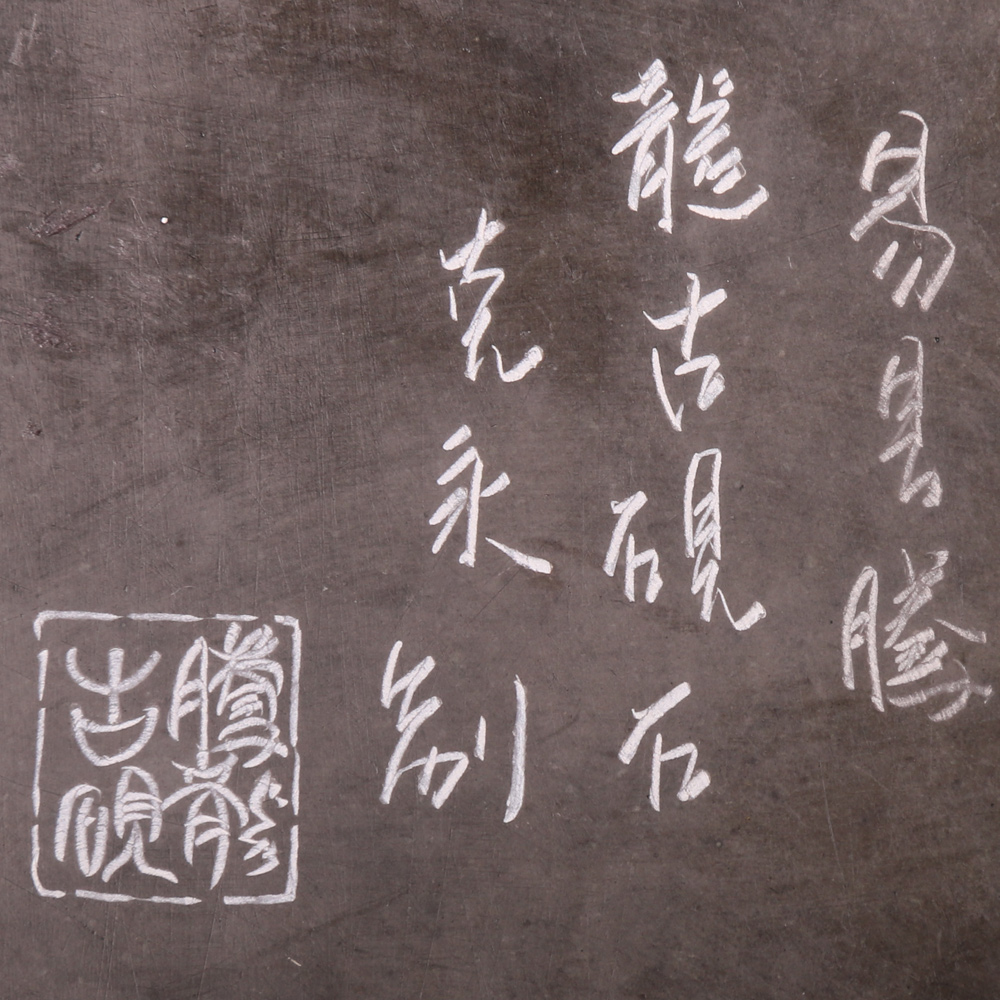 易县腾
龍古硯石
克永制
腾龍
古硯